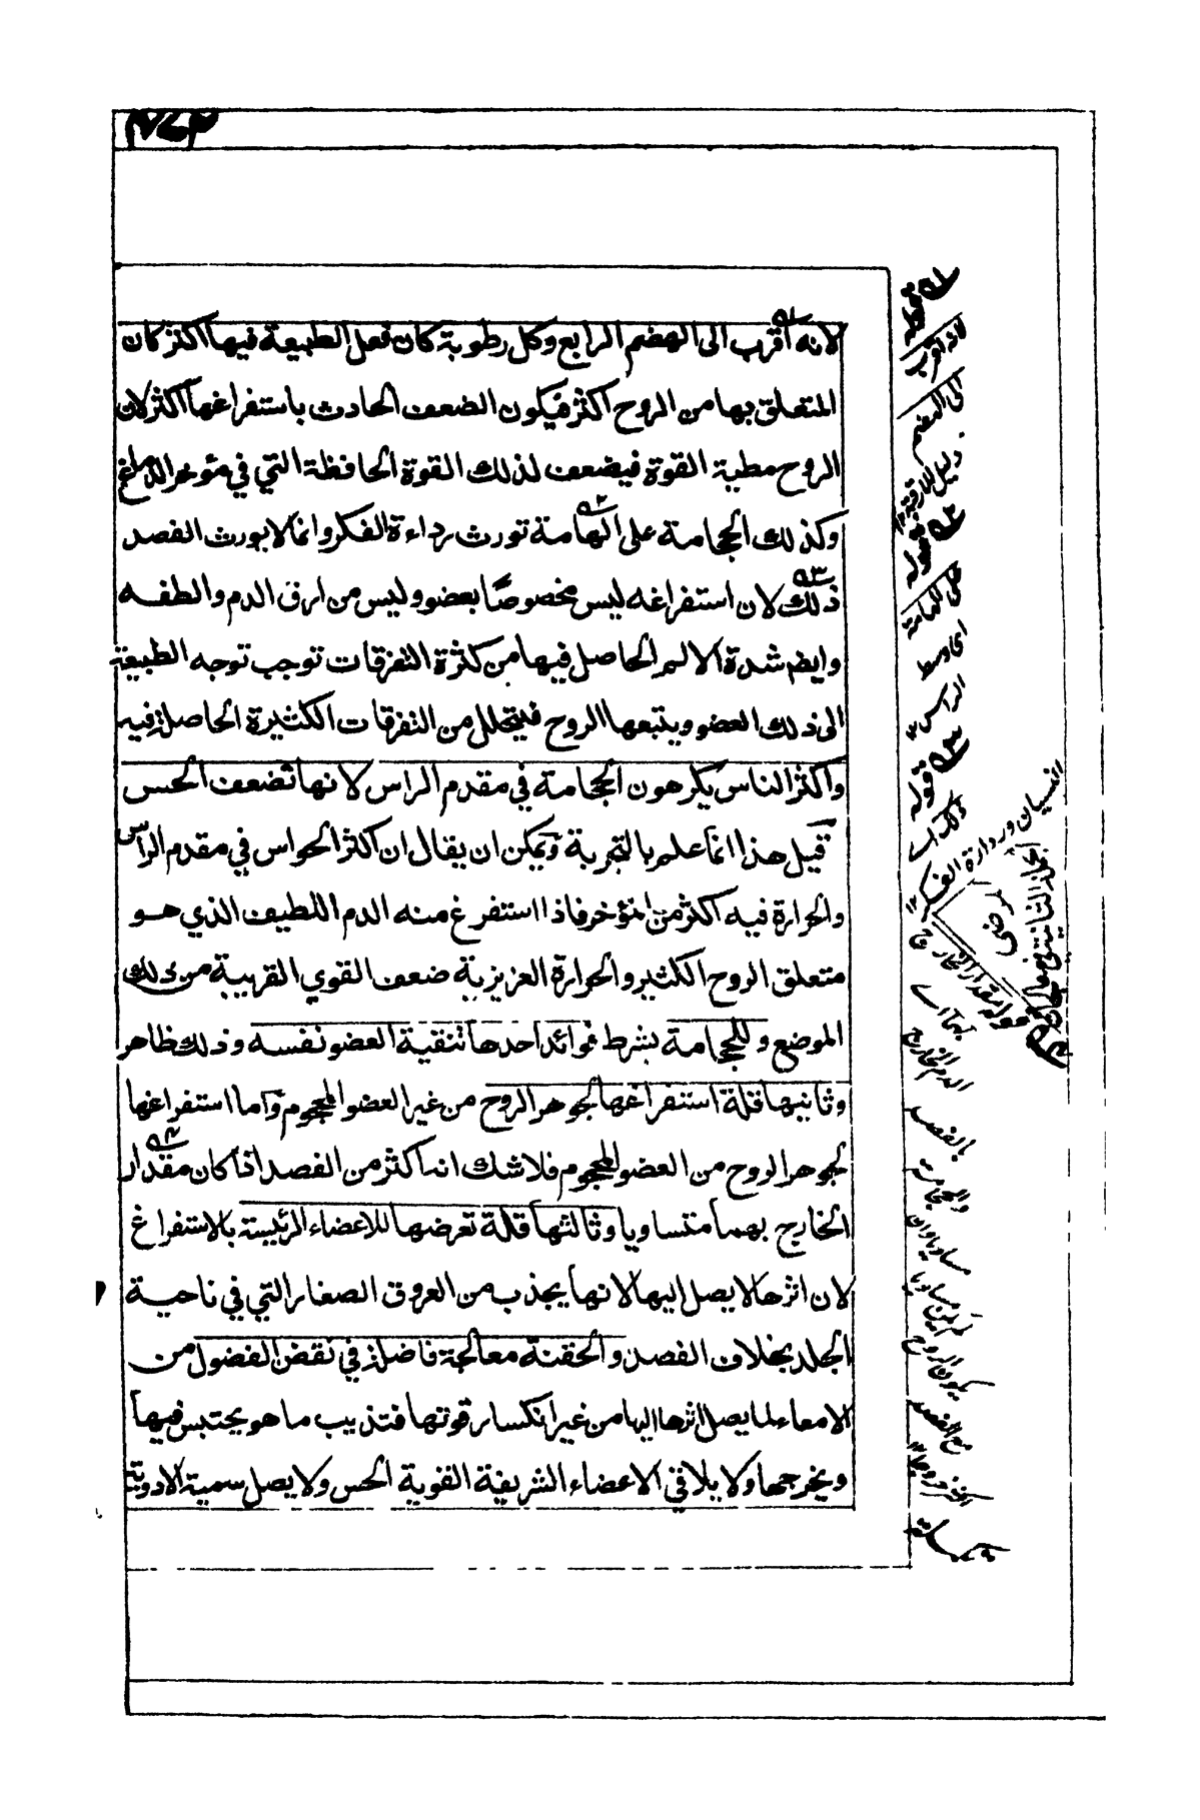 لانه اقرب الى الهضم الرابع وكل رطوبة كان فعل الطبيعة فيها اكثر كان
المتعلق بها من الروح اكثر فيكون الضعف الحادث باستفراغها اكثر لان
الروح مطية القوة فيضعف لذلك القوة الحافظة التي في مؤخر الدماغ
وكذلك الحجامة على الهامة تورث رداءة الفكر وانما لا يورث الفصد
ذلك لان استفراغه ليس مخصوصًا بعضو وليس من ارق الدم والطفه
وايضم شدة الالم الحاصل فيها من كثرة التفرقات توجب توجه الطبيعة
الى ذلك العضو ويتبعها الروح فيتحلل من التفرقات الكثيرة الحاصلة فيه
واكثر الناس يكرهون الحجامة في مقدم الراس لانها تضعف الحس
قيل هذا انما علم بالتجربة ويمكن ان يقال ان اكثر الحواس في مقدم الراس
والحرارة فيه اكثر من المؤخر فاذا استفرغ منه الدم اللطيف الذي هو
متعلق الروح الكثير والحرارة العزيزية ضعف القوي القريبة من ذلك
الموضع وللحجامة بشرط فوائد احدها تنقية العضو نفسه وذلك ظاهر
وثانيها قلة استفراغها لجوهر الروح من غير العضو المحجوم واما استفراغها
لجوهر الروح من العضو المحجوم فلا شك انه اكثر من الفصد اذا كان مقدار
الخارج بهما متساويا وثالثها قلة تعرضها للاعضاء الرئيسة بالاستفراغ
لان اثرها لا يصل اليها لانها يجذب من العروق الصغار التي في ناحية
الجلد بخلاف الفصد والحقنة معالجة فاضلة في نقض الفضول من
الامعاء لما يصل اثرها اليها من غير انكسار قوتها فتذيب ما هو يحتبس فيها
ويخرجها ولا يلاقي الاعضاء الشريفة القوية الحس ولا يصل سمية الادوية
٩١ قوله
لانه اقرب
الى الهضم
٩٢ قوله
على الهامة
اى وسط
الراس ١٢
٩٣ قوله
ذلك اى
النسيان ورداءة الفكر ١٢
٩٤ قوله مقدار الخارج
بهما اے
الدم الخارج
بالفصد
والحجامة